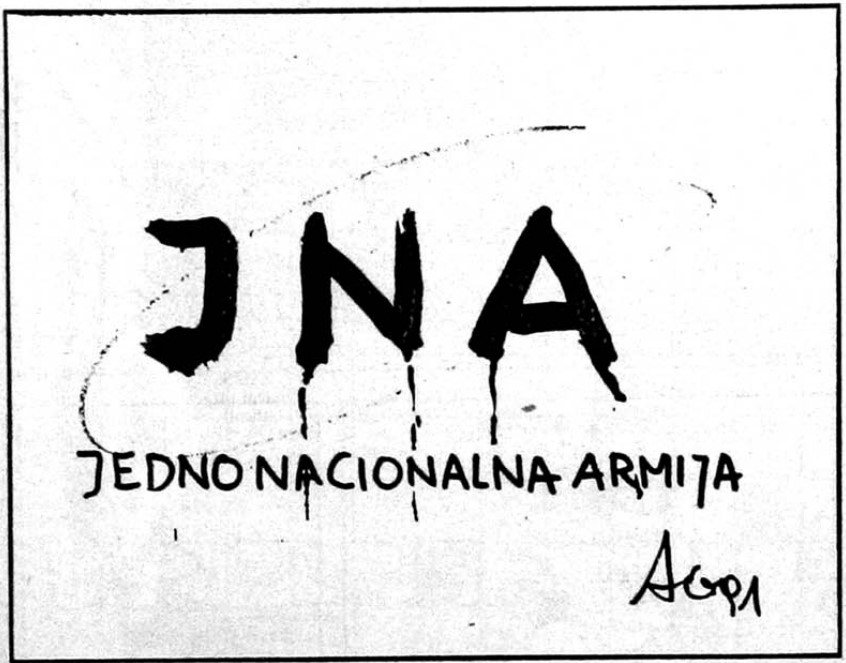 JNA
JEDNO NACIONALNA ARMIJA